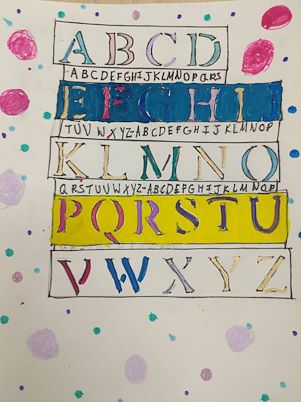 ABCD
ABCDEFGHIJKLMNOPQRS
EFGHIJ
TUVWXYZ-ABCDEFGHIJKLMNOP
KLMNO
QRSTUVWXYZ-ABCDEFGHIJKLMNOP
PQRSTU
VWXYZ